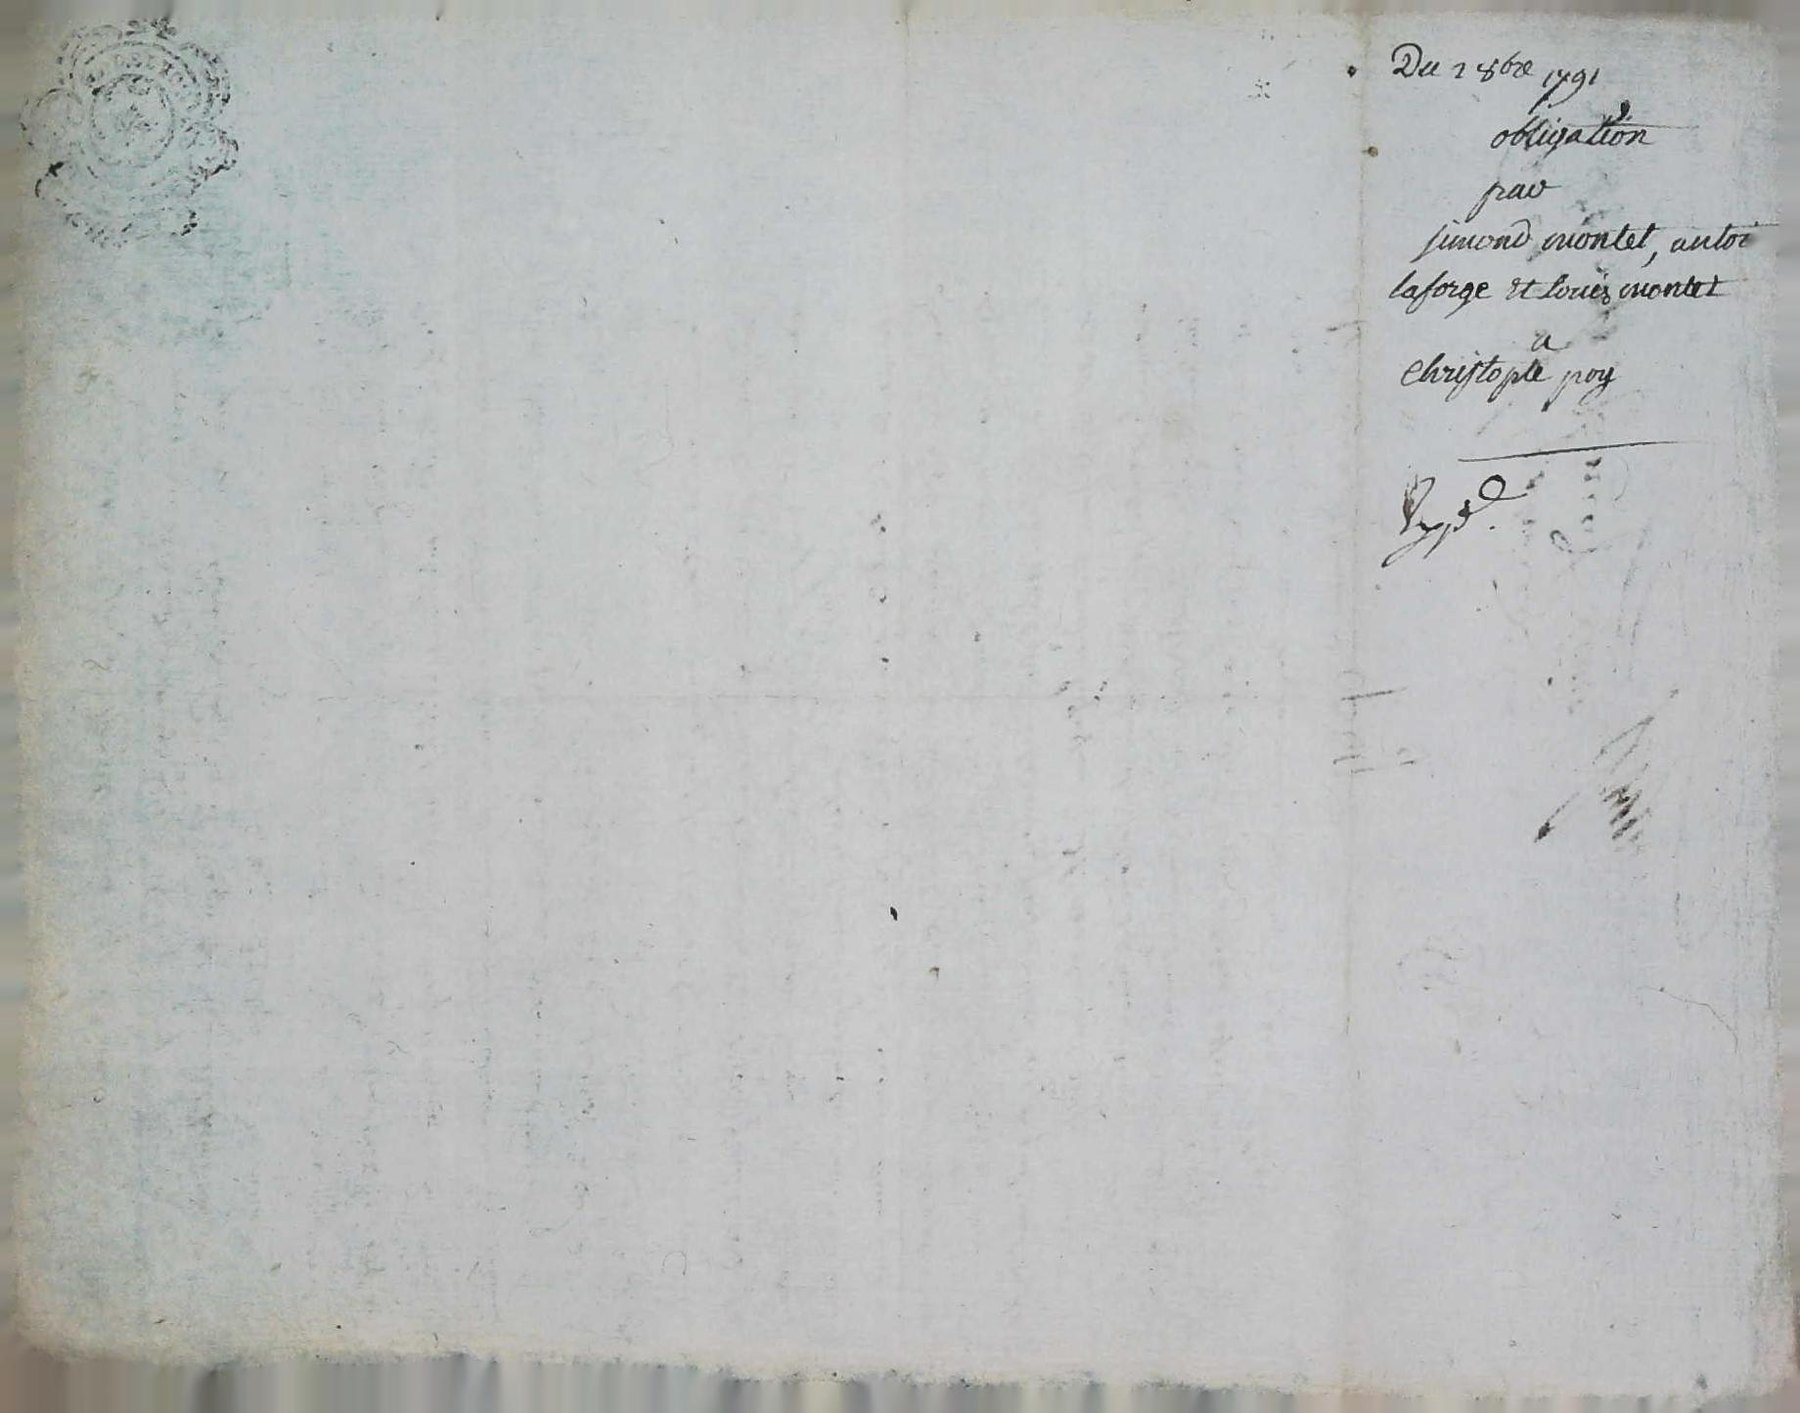 Du 2 8bre 1791
obligation
par
simond montet, antoi
laforge et louis montet
a
Christophe poy